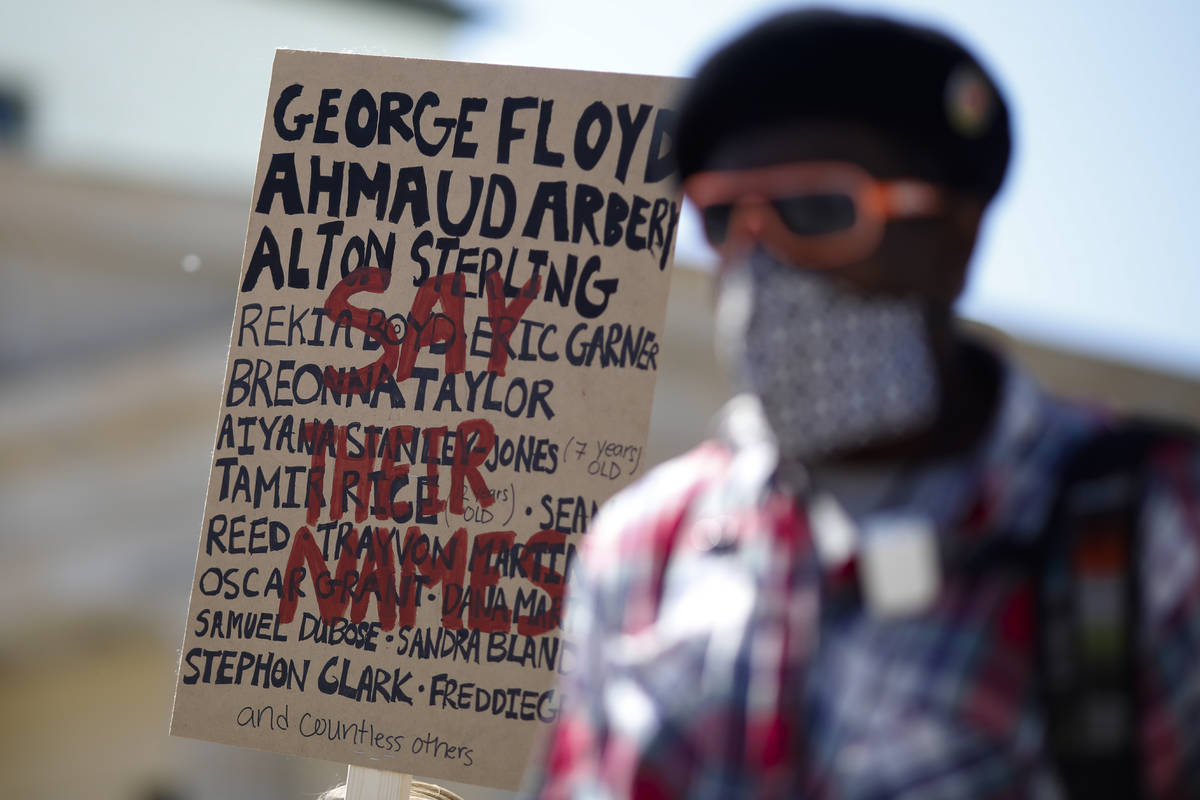 GEORGE FLOYD
AHMAUD ARBERY
ALTON STERLING
REKIA BOYD ERIC GARNER
BREONNA TAYLOR
AIYANA STANLEY-JONES (7 years
OLD)
TAMIR RICE (12 years
OLD) · SEAN
REED · TRAYVON MARTIN
OSCAR GRANT · DANA MAR
SAMUEL DUBOSE · SANDRA BLAND
STEPHON CLARK · FREDDIE G
and countless others
SAY
THEIR
NAMES